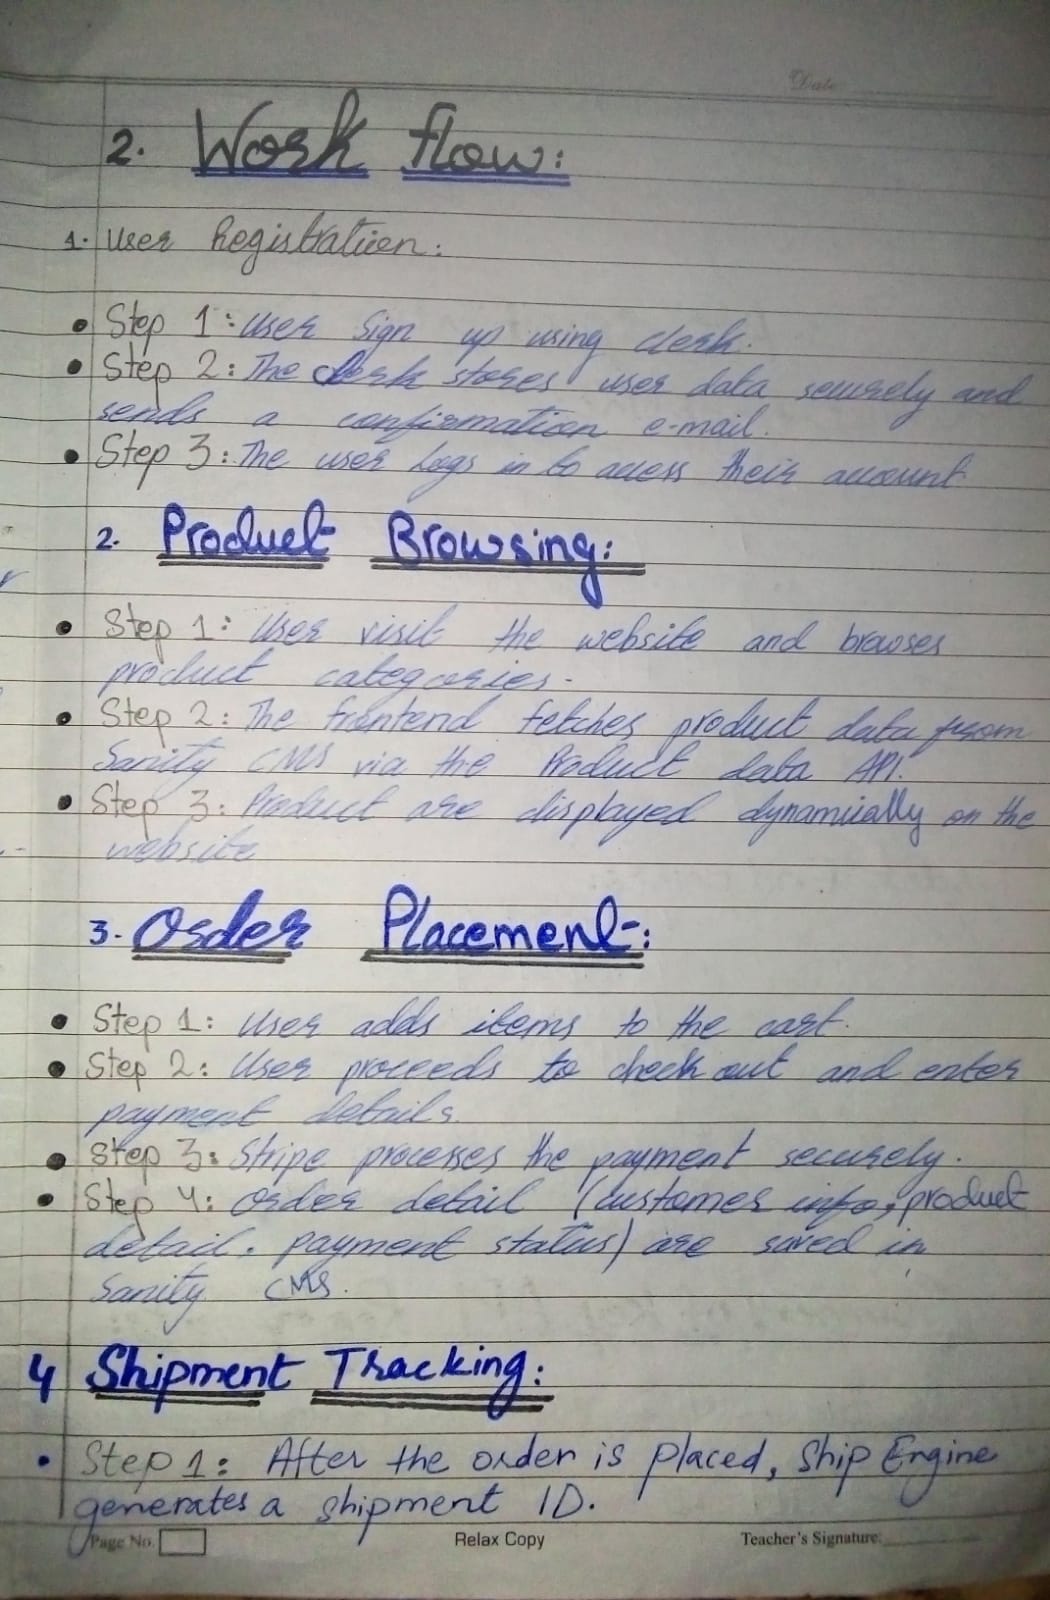 Date
2. Work flow:
1. User Registration:
• Step 1: User Sign up using clerk.
• Step 2: The clerk stores user data securely and
sends a confirmation e-mail.
• Step 3: The user logs in to access their account
2. Product Browsing:
• Step 1: User visit the website and browses
product categories.
• Step 2: The frontend fetches product data from
Sanity CMS via the Product data API.
• Step 3: Product are displayed dynamically on the
website
3. Order Placement:
• Step 1: User adds items to the cart.
• Step 2: User proceeds to check out and enter
payment details.
• Step 3: Stripe processes the payment securely.
• Step 4: Order detail (customer info, product
detail, payment status) are saved in
Sanity CMS.
4 Shipment Tracking:
• Step 1: After the order is placed, Ship Engine
generates a shipment ID.
Page No. Relax Copy Teacher's Signature: